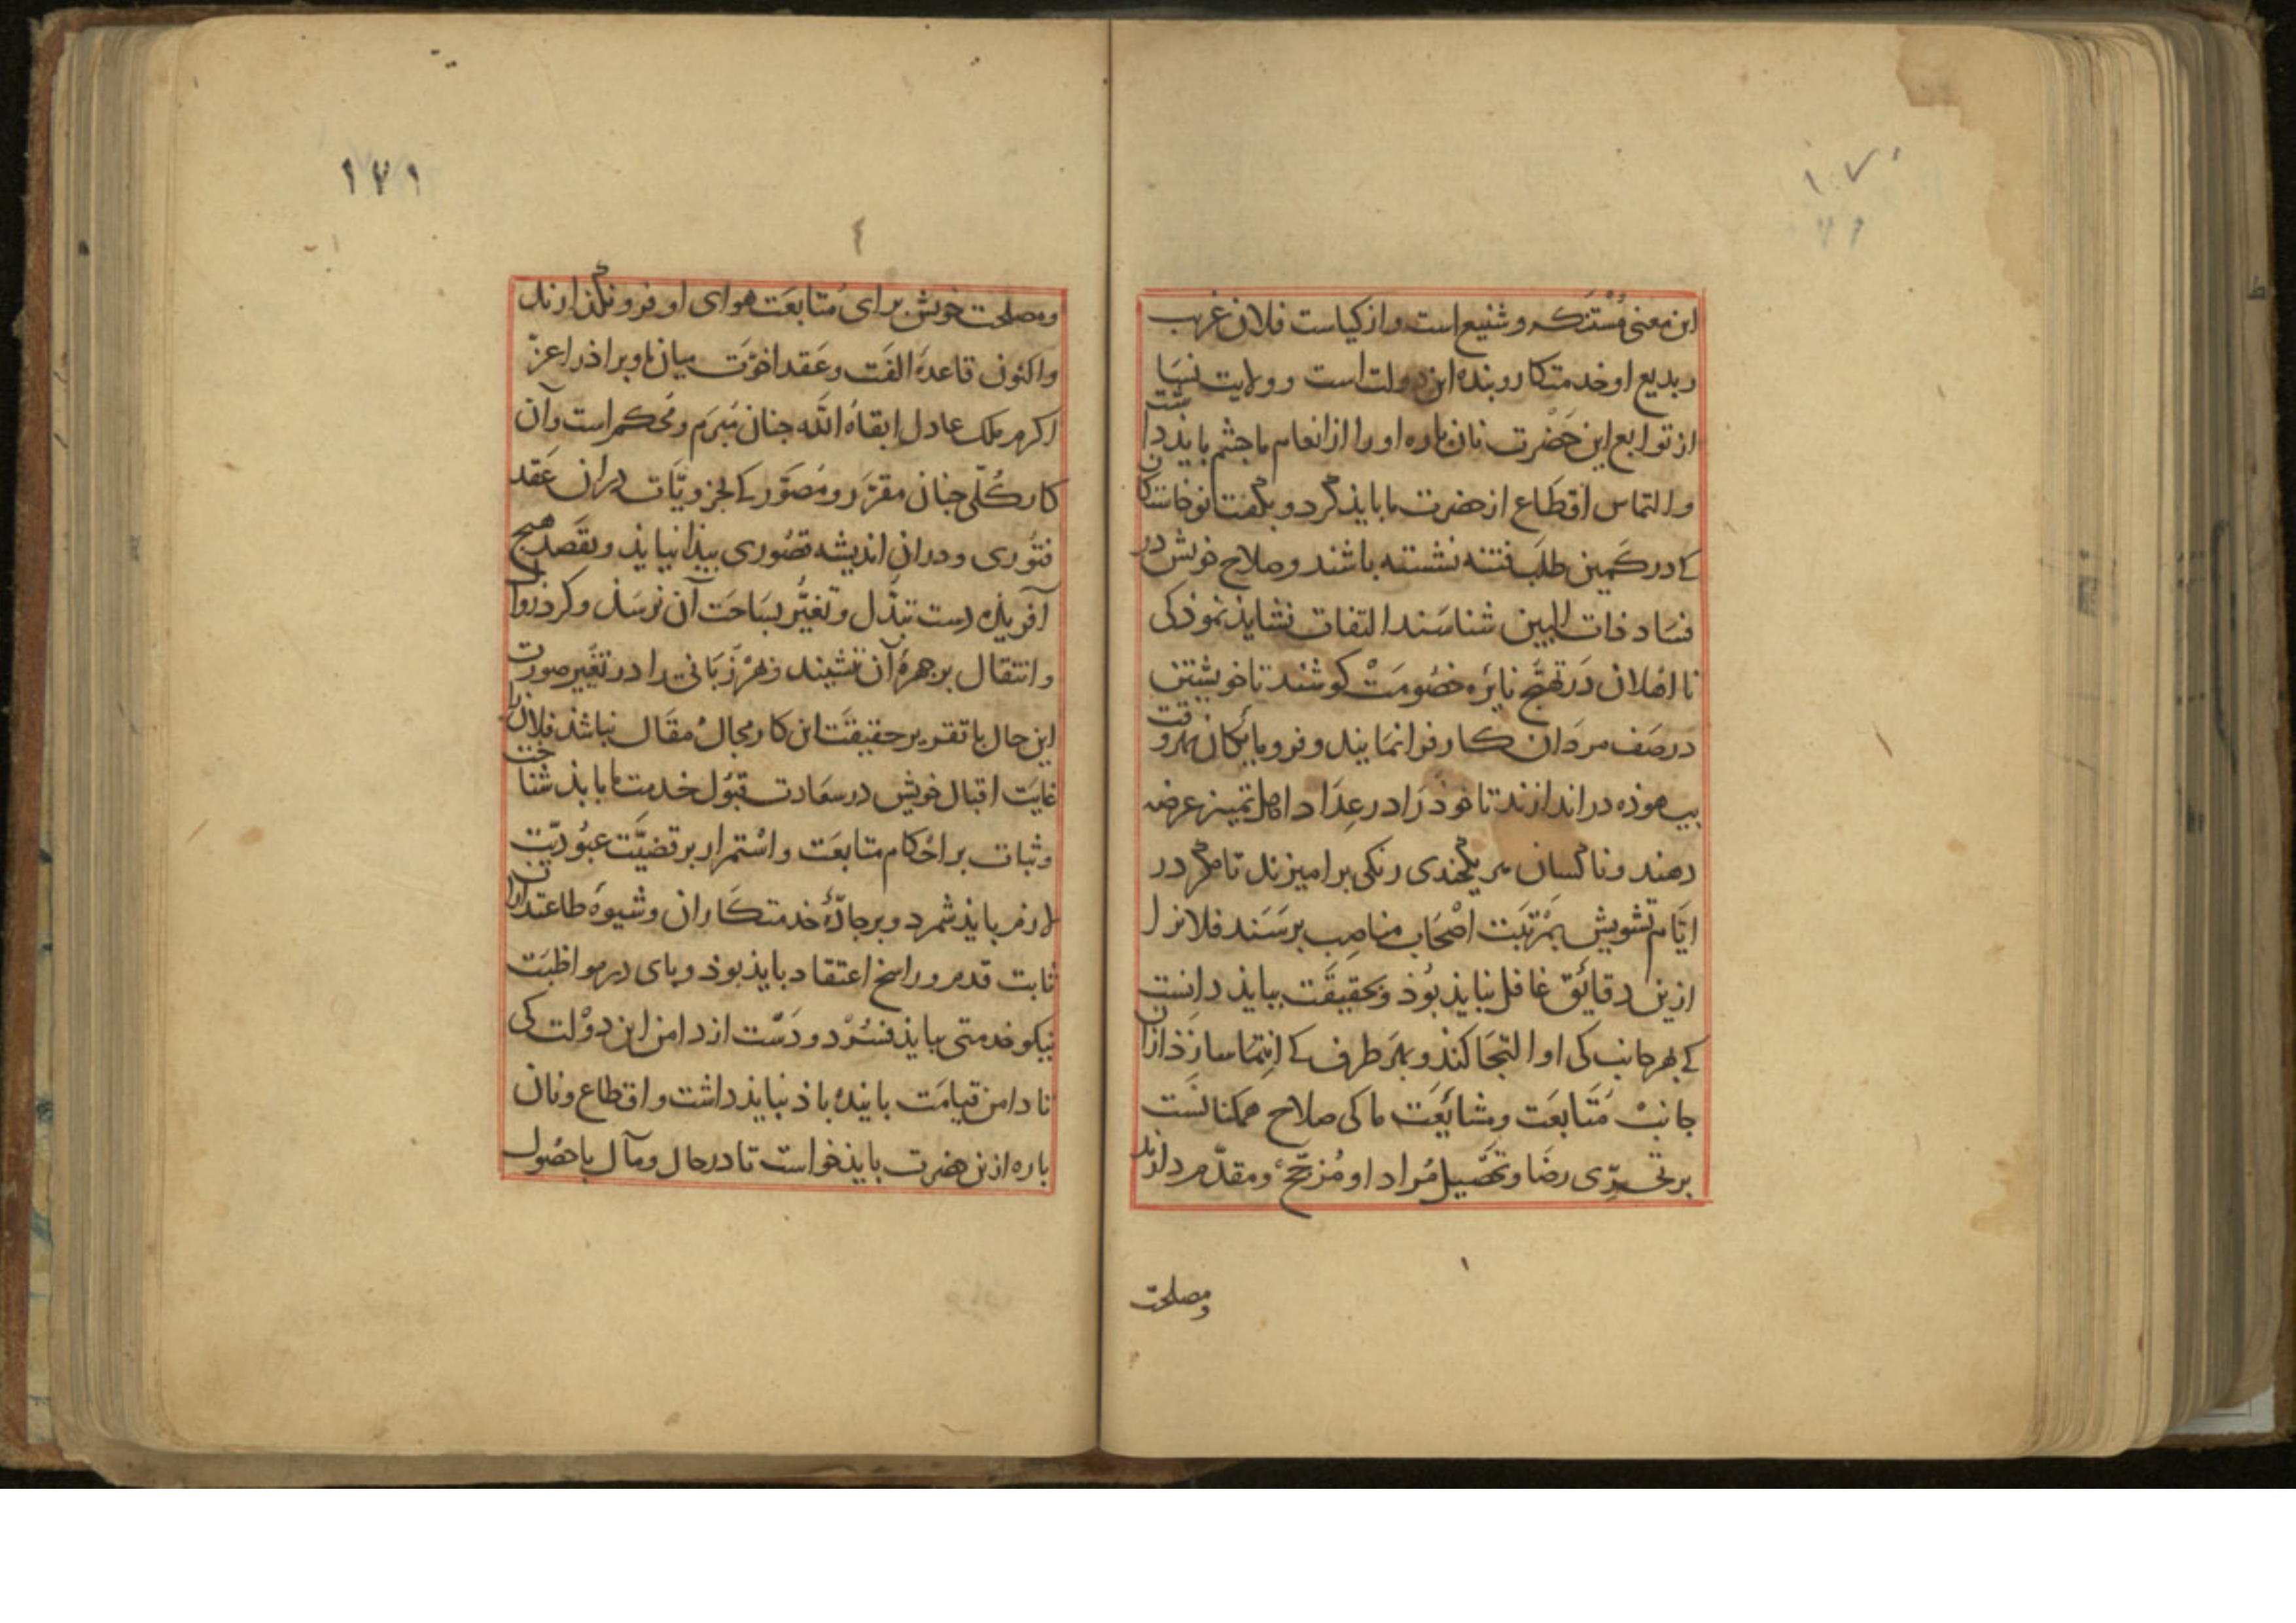 ۱۷۰
۷۶
این معنی مُستنکر و شنیع است و از کیاست فلان غریب
و بدیع او خدمتکار و بنده این دولت است و ولایت نسا
از توابع این حَضْرت نان پاره او را از انعام ما چشم بایذ داشت
و التماس اقطاع از حضرت ما بایذ کرد و بگفت نوخاستکان
کے در کمین طلب فتنه نشسته باشند و صلاح خویش در
فسَاد ذات البین شناسَند التفات نشایذ نموذ کی
نا اهلان دَر تهیّج نایره خصُومَتْ کوشند تا خویشتن
در صَف مردان کار فرا نمایند و فرومایکان بهر وقت
بیهوذه در اندازند تا خوذ رَا در عِدَاد اهل تمییز عرضه
دهند و ناکسان هر یکچندی رنکی برامیزند تا مکر در
ایّام تشویش بمَرْتبَت اصْحَاب مناصِب برسَند فلانرا
ازین دقائق غافل نبایذ بُوذ و بحقیقَت ببایذ دانِست
کے بهر جانب کی او التجا کنذ و بهَر طرف کے انتِمَا سازذ ازان
جانبْ مُتَابعَت و مشایَعَت ما کی صلاح همکنانست
بر تحرّی رضَا و تحصِیل مُراد او مُرَجَّح و مقدّم دارند
و مصلحت
۱۷۱
٤
و مصلحت خویش برای مُتابعَت هوای او فرو نکذارند
و اکنون قاعدهَ الفَت و عَقد اخوّت میان ما و براذر اعزّ
اکرم ملک عادل ابقاهُ اللّه جنان مُبرَم و مُحکم است و آن
کار کُلّی جنان مقرّر و مُصَوّر کے بجزویّات دران عَقد
فتُوری و دران اندیشه قصُوری بیذا نیایذ و بقَصد هیچ
آفریذه دست تبدّل و تغیُّر بسَاحَت آن نرسَذ و کرد زوال
و انتقال بر جهرهٔ آن ننشیند و هرْزَبَانی را در تغییر صورت
این حال یا تقریر حقیقَت این کار مجالُ مقَال نباشذ فلان را
غایَت اقبال خویش در سعَادت قبُول خدمت ما بایذ شناخت
و ثبات بر احْکام متابعَت و اسْتمرار بر قضیَّت عبُودیّت
لازم بایذ شمرد و بر جادّهٔ خدمتکاران و شیوهَ طاعتداران
ثابت قدم و راسخ اعتقاد بایذ بوذ و بای در مواظبَت
نیکو خدمتی ببایذ فسُرْد و دَسْت از دامن این دوْلت کی
تا دامن قیامَت بایندهْ باذ نبایذ داشت و اقطاع و نان
باره ازین حضرت بایذ خواست تا در حال و مآل باحصُول